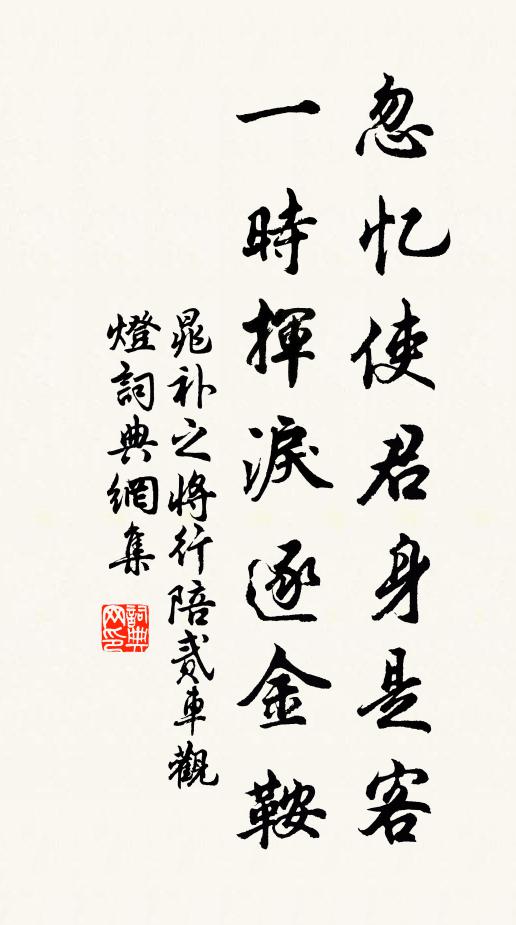 忽忆使君身是客
一時揮淚逐金鞍
晁补之将行陪貳車觀
燈詞典網集
詞典
网印